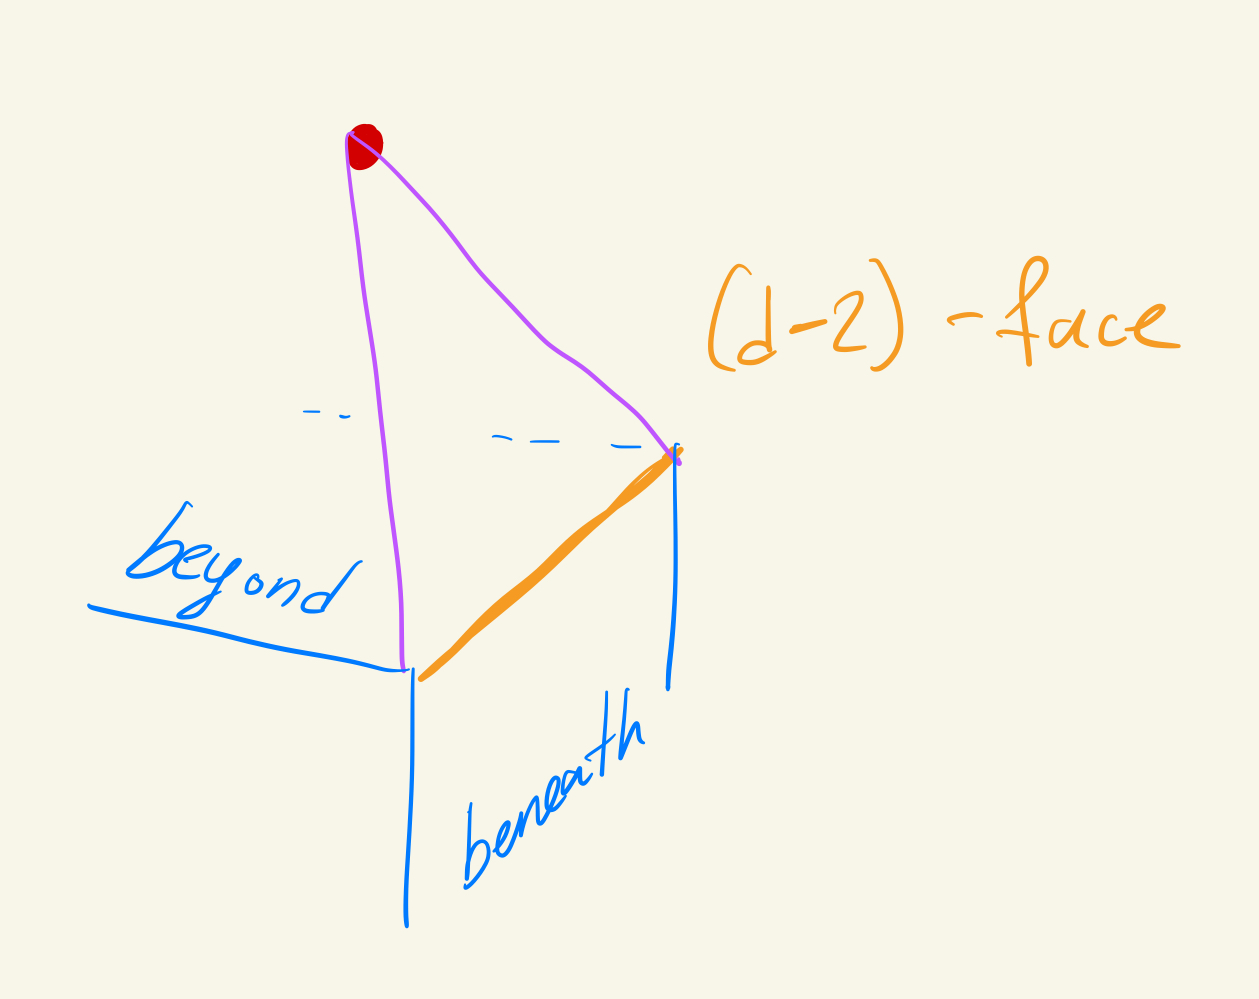 (d-2)-face
beyond
beneath